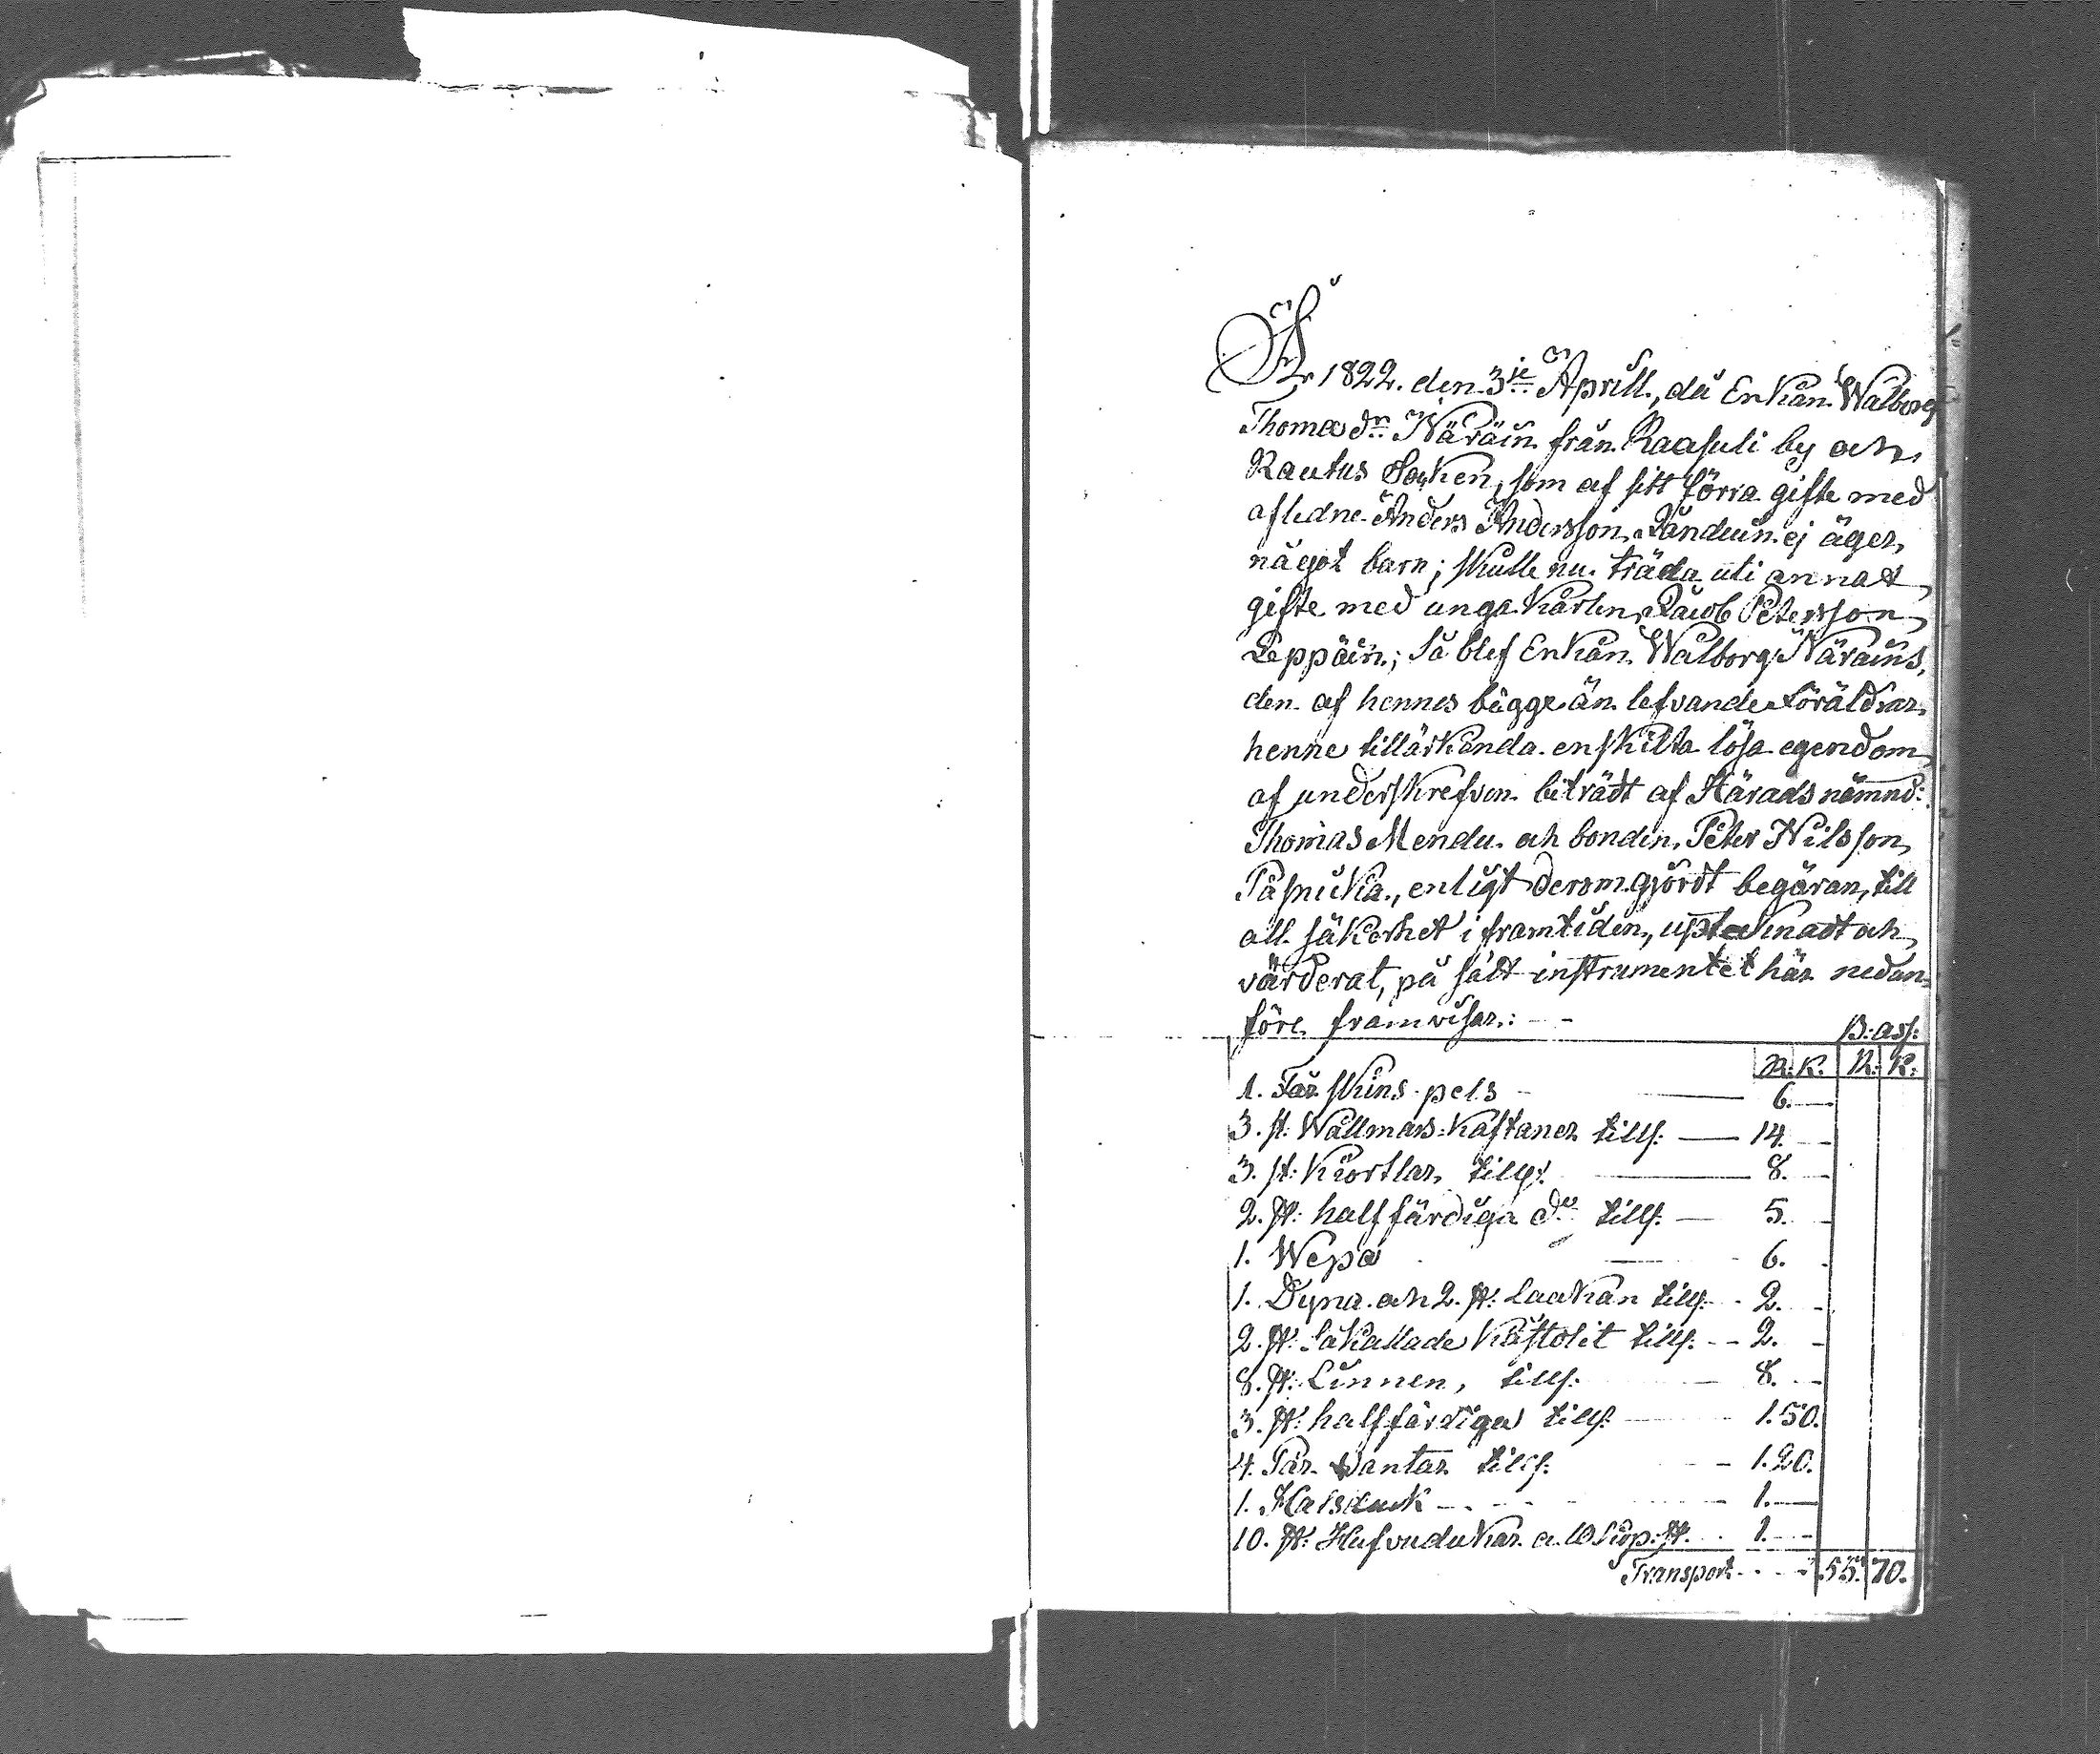 År 1822. den 3ie Aprill, då Enkan Walborg
Thomædr Näräin från Raasuli by och
Rautus Socken, som af sitt förra gifte med
afledne Anders Andersson Länduin ej äger
något barn; skulle nu träda uti annat
gifte med unga Karlen Jacob Petersson
Leppäin; Så blef Enkan Walborg Näräins,
den af hennes bägge än lefvande Föräldrar
henne tillärkända enskilta lösa egendom
af underskrefven biträdt af Härads nämnd:
Thomas Mendu och bonden Peter Nilsson
Pasuika, enligt derom gjordt begäran, till
all säkerhet i framtiden, uptecknadt och
värderat, på sätt instrumentet här nedan-
före framvisar: - -
B: ass:
R: K. R: K:
1. Får skins pels - 6. -
3. st: Wallmars Kaftaner tills: - 14. -
3. st: Kiortlar, tills: - 8. -
2. st: halffärdiga do tills: - 5. -
1. Wepa - 6. -
1. Dyna och 2. st: laakan tills: - 2. -
2. st: Så Kallade Kåstolit tills: - - 2. -
8. st: Linnen, tills: - 8. -
3. st: halffärdiga tills: - 1. 50.
4. Par Wantar tills: - - 1. 20.
1. Halsduk - 1. -
10. st: Hufvuddukar a 10 Kop: st. 1. -
Transport - - - 55. 70.